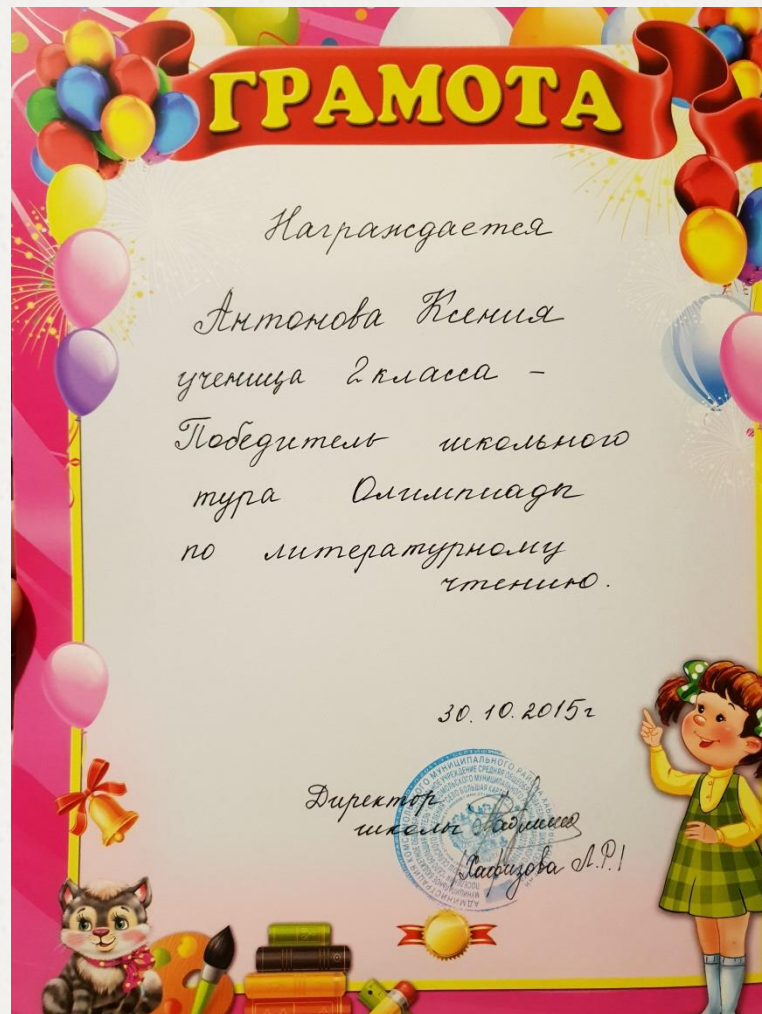 ГРАМОТА
Награждается
Антонова Ксения
ученица 2 класса –
Победитель школьного
тура Олимпиады
по литературному
чтению.
30.10.2015г
Директор
школы
/Хафизова Л.Р./